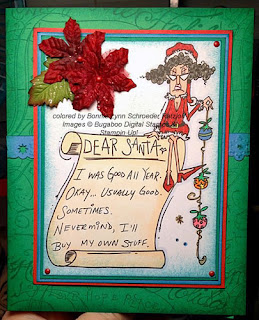 colored by Bonnie Lynn Schroeder
Images © Bugaboo Digital Stamps &
Stampin Up!
DEAR SANTA,
I WAS GOOD ALL YEAR.
OKAY... USUALLY GOOD.
SOMETIMES.
NEVERMIND, I'LL
BUY MY OWN STUFF.